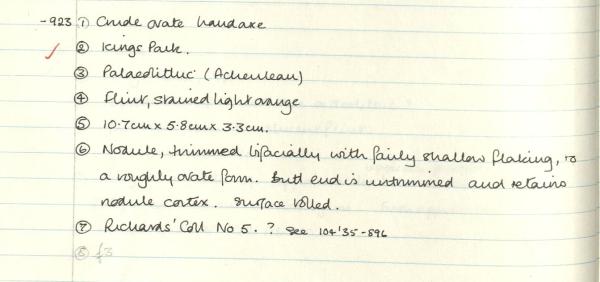 -923 ① Crude ovate handaxe
② Kings Park.
③ Palaeolithic (Acheulean)
④ Flint, stained light orange
⑤ 10.7cm x 5.8cm x 3.3cm.
⑥ Nodule, trimmed bifacially with fairly shallow flaking, to
a roughly ovate form. Butt end is untrimmed and retains
nodule cortex. Surface rolled.
⑦ Richards' Coll No 5. ? See 104'35-896
⑧ £3